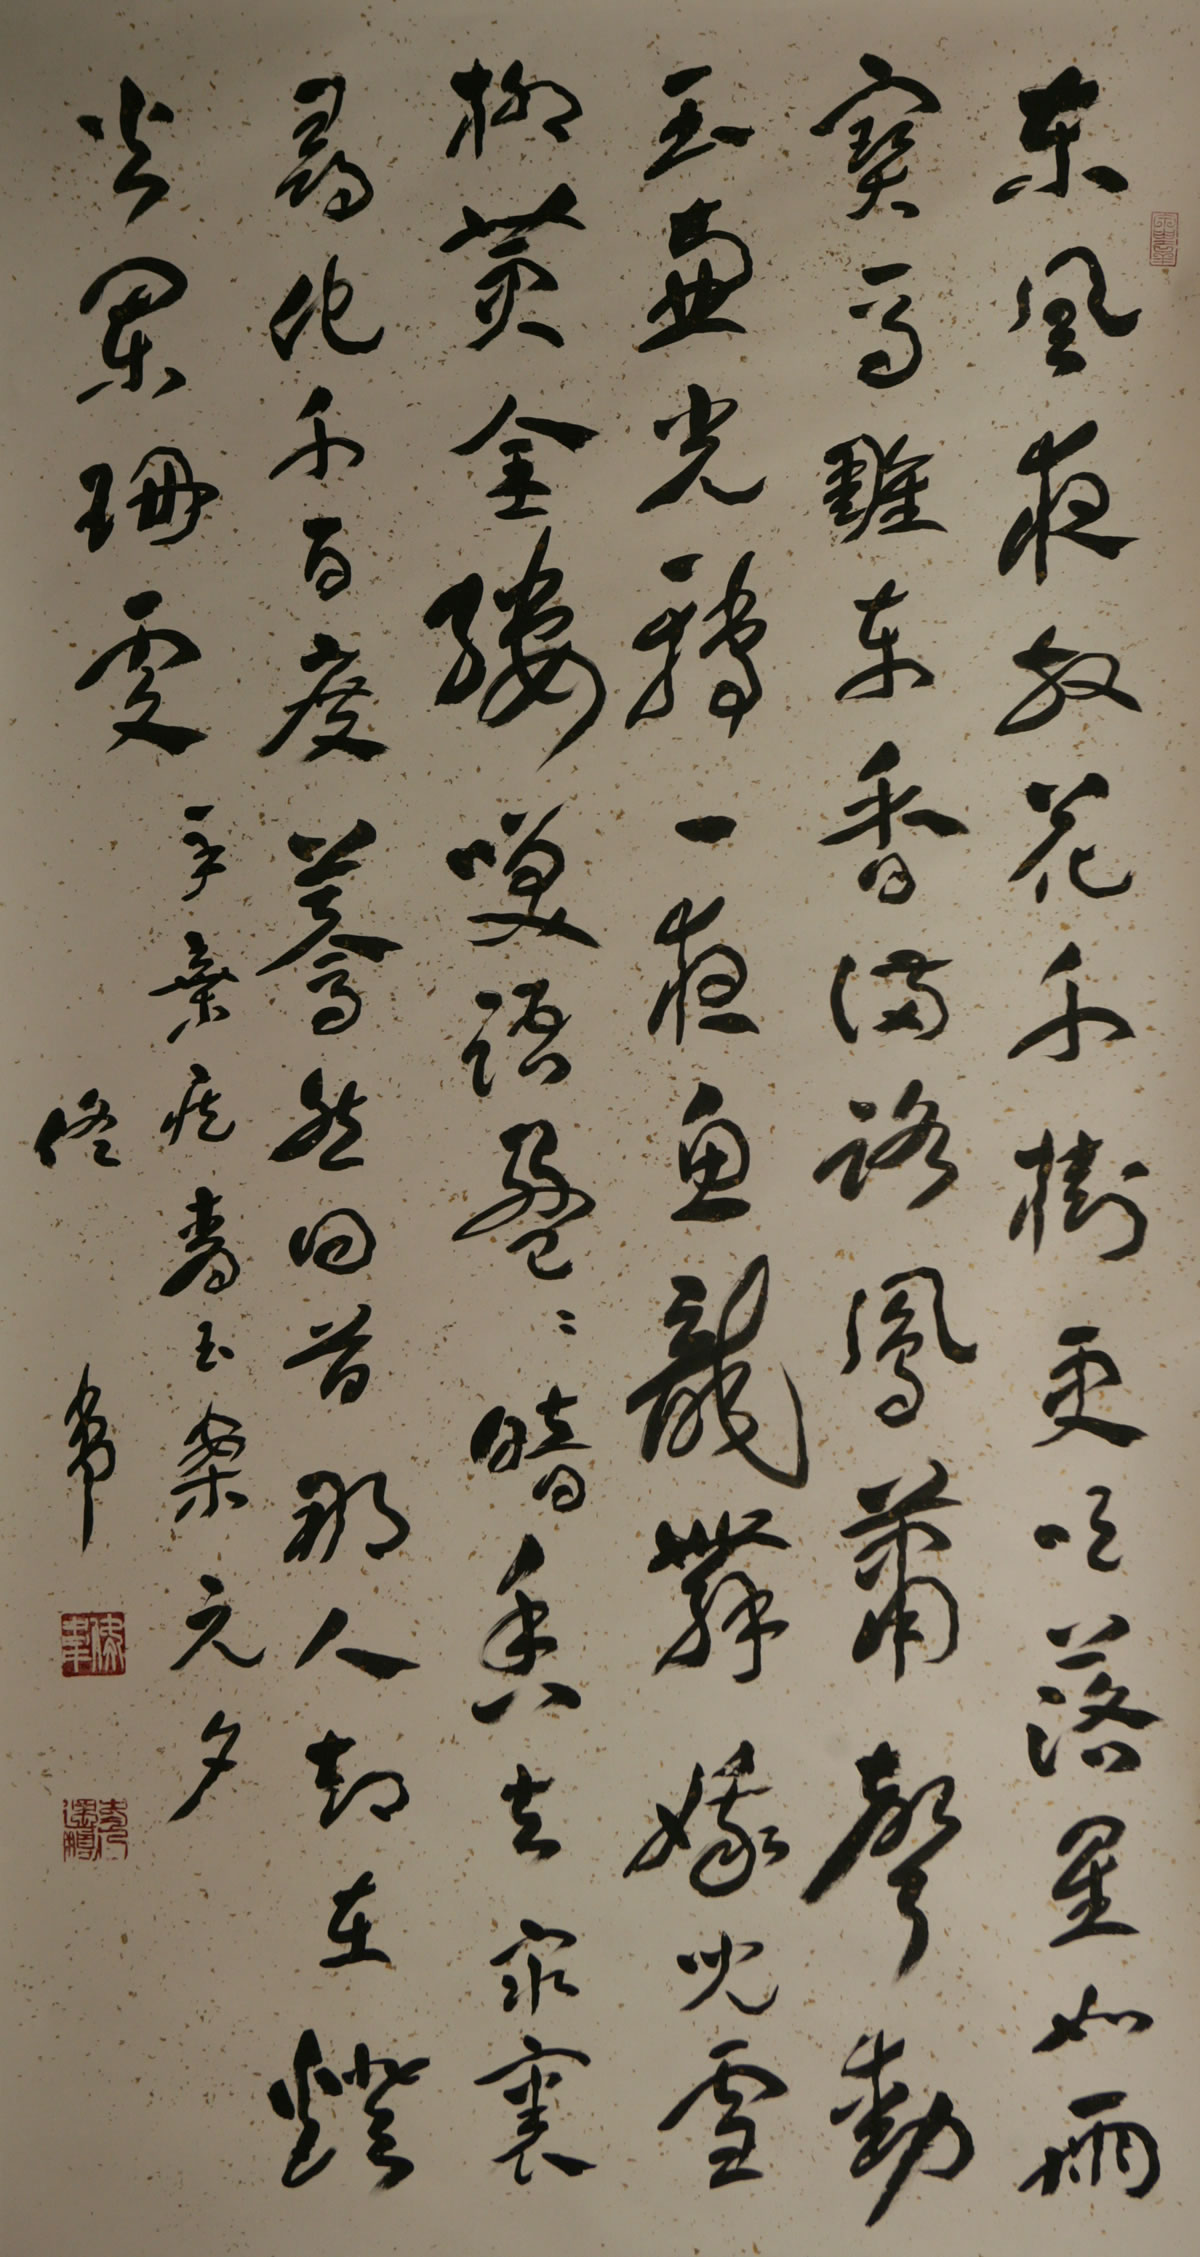 東風夜放花千樹更吹落星如雨
寶馬雕車香滿路鳳簫聲動
玉壺光轉一夜魚龍舞蛾兒雪
柳黃金縷笑語盈〻暗香去衆裏
尋他千百度驀然回首那人却在燈
火闌珊處
辛棄疾青玉案元夕
佟韋
佟韋